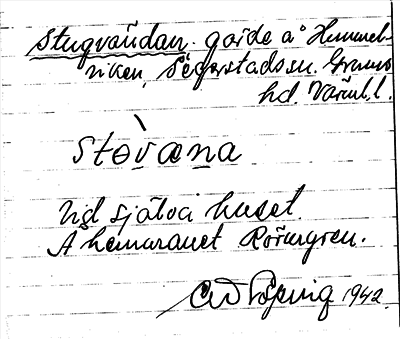 Stugvändan. gärde å Himmels-
viken, Segerstads sn. Grums
hd. Värml. l.
Stòvæna
Vid själva huset.
Å hemmanet Rörmgren.
1942.